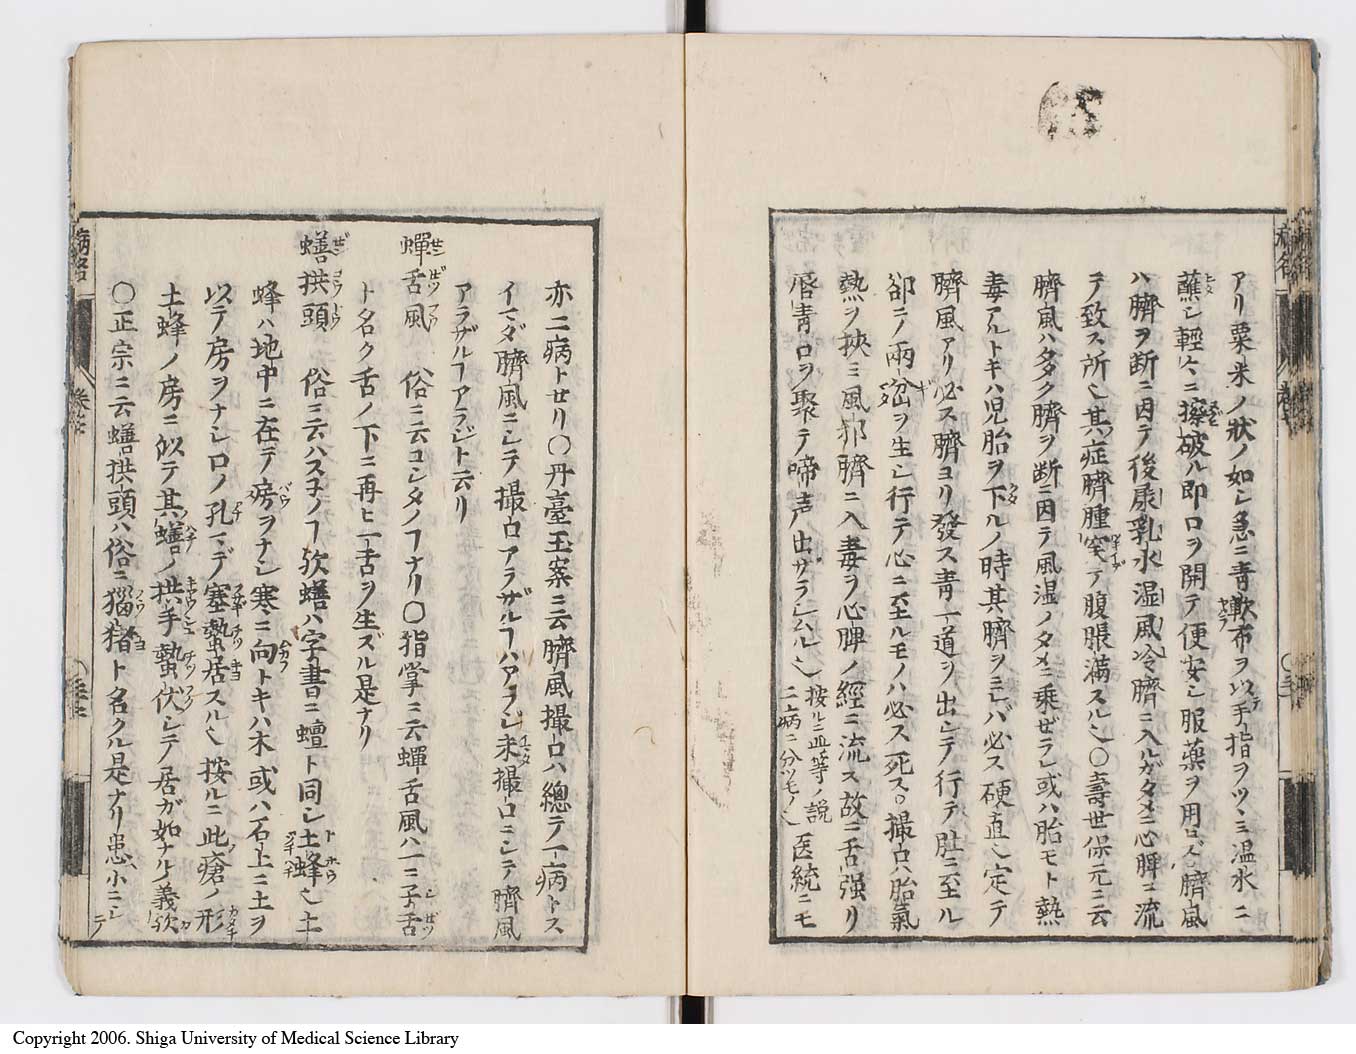 アリ粟米ノ狀ノ如シ急ニ青軟布ヲ以テ手指ヲツヽミ温水ニ
蘸シ輕々ニ擦破ル即口ヲ開テ便安シ服藥ヲ用ヒズ○臍風
ハ臍ヲ断ニ因テ後尿乳水湿風冷臍ニ入ルガタメニ心脾ニ流
テ致ス所也其症臍腫突テ腹脹滿スル也○壽世保元ニ云
臍風ハ多ク臍ヲ断ニ因テ風湿ノタメニ乗ゼラレ或ハ胎モト熱
毒アルトキハ児胎ヲ下ルノ時其臍ヲミレバ必ス硬直也定テ
臍風アリ必ス臍ヨリ發ス青一道ヲ出シテ行テ肚ニ至ル
卻テ兩岔ヲ生シ行テ心ニ至ルモノハ必ス死ス○撮口ハ胎氣
熱ヲ挾ミ風邪臍ニ入毒ヲ心脾ノ經ニ流ス故ニ舌强リ
唇青口ヲ聚テ啼声出サラシムル也 按ルニ並等ノ説
二病ニ分ツモノ也 医統ニモ
亦二病トせリ○丹臺玉案ニ云臍風撮口ハ總テ一病トス
イマダ臍風ニシテ撮口アラザルヿハアラジ未撮口ニシテ臍風
アラザルヿアラジト云リ
蟬舌風 俗ニ云コシタノヿナリ○指掌ニ云蟬舌風ハ一ニ子舌
ト名ク舌ノ下ニ再ヒ一舌ヲ生ズル是ナリ
蟮拱頭 俗ニ云ハス子ノヿ欤蟮ハ字書ニ蟺ト同シ土蜂也土
蜂ハ地中ニ在テ房ヲナシ寒ニ向トキハ木或ハ石上ニ土ヲ
以テ房ヲナシ口ノ孔マデ塞蟄居スル也按ルニ此瘡ノ形
土蜂ノ房ニ似テ其蟮ノ拱手蟄伏シテ居ガ如ナル義欤
○正宗ニ云蟮拱頭ハ俗ニ猫猪ト名クル是ナリ患小ニシテ
病名
Copyright 2006. Shiga University of Medical Science Library